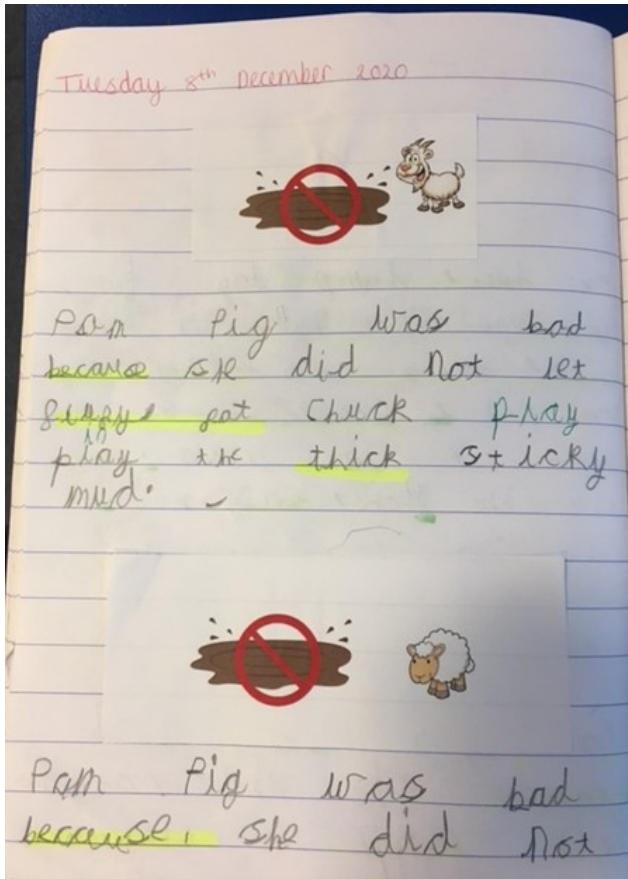 Tuesday 8th December 2020
Pam Pig was bad
because she did not let
goat Chuck play
in
play the thick sticky
mud.
Pam Pig was bad
because, she did not